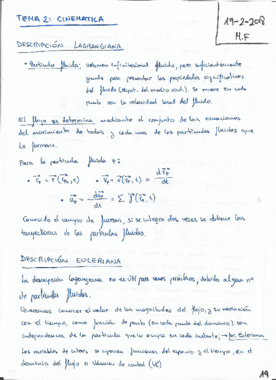 TEMA 2: CINEMATICA
19-2-2018
M.F
DESCRIPCIÓN LAGRANGIANA
• Partícula fluida: volumen infinitesimal fluido, pero suficientemente
grande para presentar las propiedades significativas
del fluido (Hipót. del medio cont.). Se mueve en cada
punto con la velocidad local del fluido.
El flujo se determina mediante el conjunto de las ecuaciones
del movimiento de todas y cada una de las partículas fluidas que
lo forman.
Para la partícula fluida P:
Conocido el campo de fuerzas, si se integra dos veces se obtiene las
trayectorias de las partículas fluidas.
DESCRIPCIÓN EULERIANA
La descripción lagrangiana no es útil para casos prácticos, debido al gran nº
de partículas fluidas.
Queremos conocer el valor de las magnitudes del flujo, y su variación
con el tiempo, como función de punto (en cada punto del dominio) con
independencia de la partícula que lo ocupa en cada instante;
las variables de interés, se expresan funciones del espacio y el tiempo, en el
dominio del flujo o Volumen de control (VC)
19